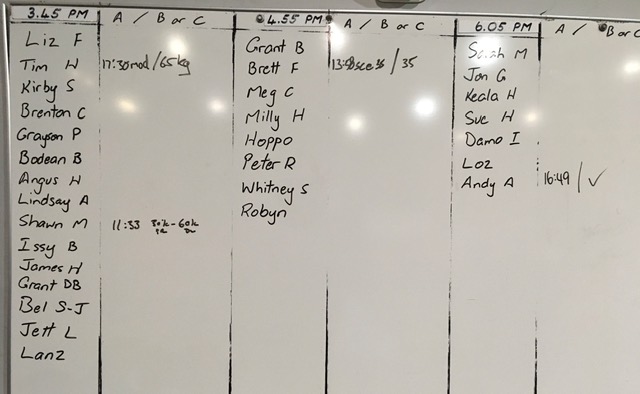 3.45 PM A / B or C
Liz F
Tim H 17:30mod/65kg
Kirby S
Brenton C
Grayson P
Bodean B
Angus H
Lindsay A
Shawn M 11:33
Issy B
James H
Grant DB
Bel S-J
Jett L
Lanz
4.55 PM A / B or C
Grant B
Brett F / 35
Meg C
Milly H
Hoppo
Peter R
Whitney S
Robyn
6.05 PM A / B or C
Sarah M
Jon G
Keala H
Sue H
Damo I
Loz
Andy A 16:49 / ✓